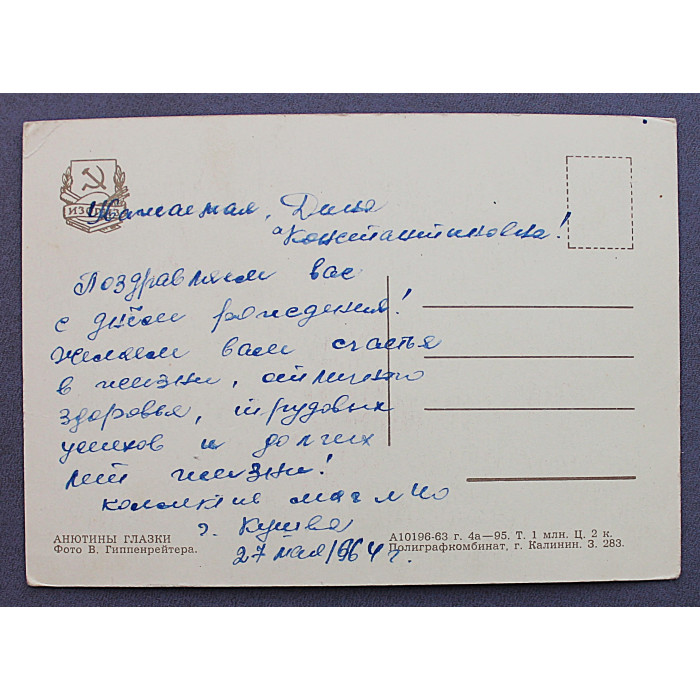 ИЗОГИЗ
Уважаемая, Дина
Константиновна!
Поздравляем вас
с днём рождения!
желаем вам счастья
в жизни, отлично
здоровья, трудовых
успехов и долгих
лет жизни!
коллектив маг №10
г. Кушва
27 мая/64 г.
АНЮТИНЫ ГЛАЗКИ
Фото В. Гиппенрейтера.
А10196-63 г. 4а—95. Т. 1 млн. Ц. 2 к.
Полиграфкомбинат, г. Калинин. З. 283.